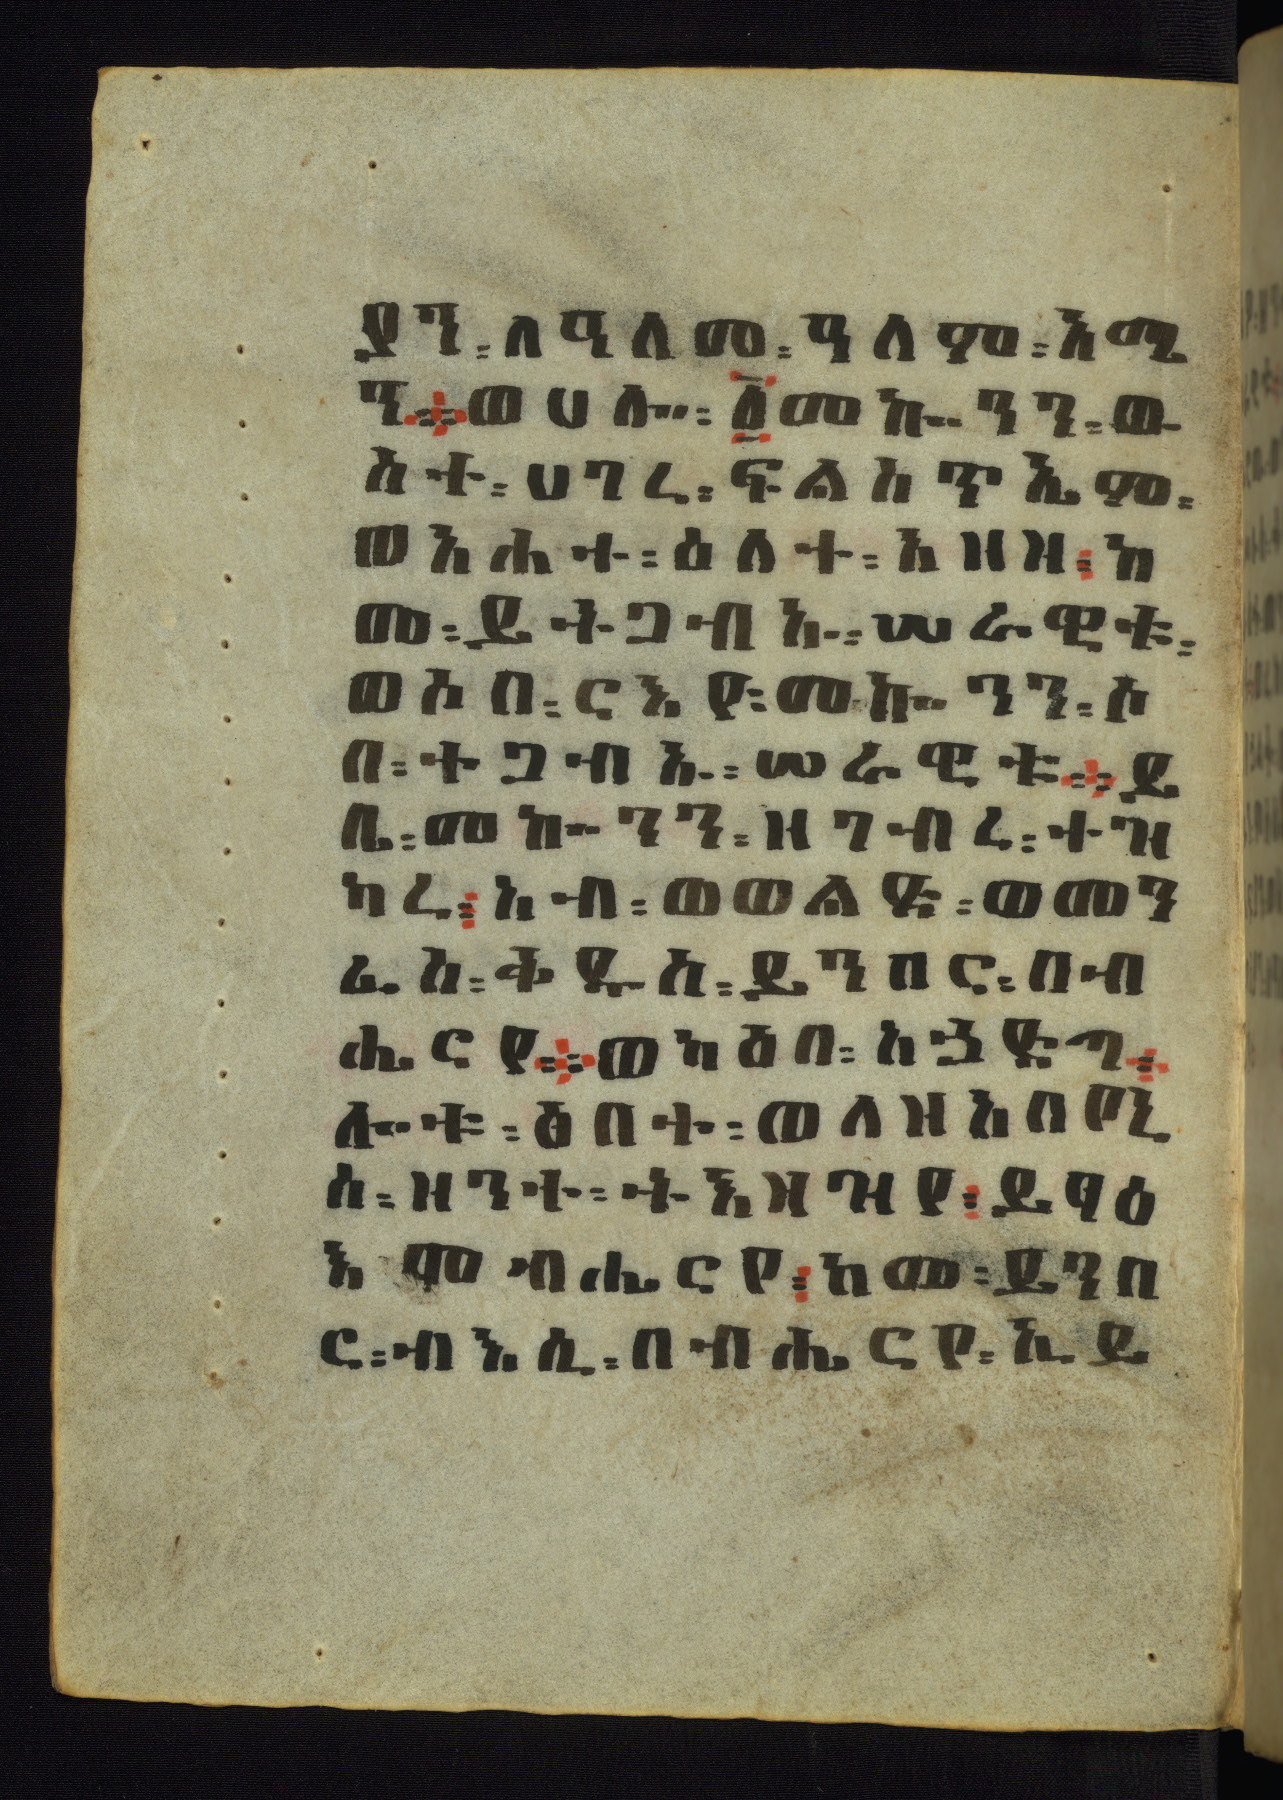 ያን፡ለዓለመ፡ዓለም፡አሜ
ን።ወሀሎ፡፩መኰንን፡ው
ስተ፡ሀገረ፡ፍልስጥኤም፡
ወአሐተ፡ዕለተ፡አዘዘ፡ከ
መ፡ይትጋብኡ፡ሠራዊቱ፡
ወሶበ፡ርእየ፡መኰንን፡ሶ
በ፡ተጋብኡ፡ሠራዊቱ።ይ
ቤ፡መኰንን፡ዘገብረ፡ተዝ
ካረ፡አብ፡ወወልድ፡ወመን
ፈስ፡ቅዱስ፡ይንበር፡በብ
ሔርየ።ወካዕበ፡አኃድጎ፡
ሎቱ፡ፅበተ፡ወለዝአበየኒ
ሰ፡ዘንተ፡ትእዛዝየ፡ይፃዕ
እምብሔርየ፡ከመ፡ይንበ
ር፡ብእሲ፡በብሔርየ፡ኢይ